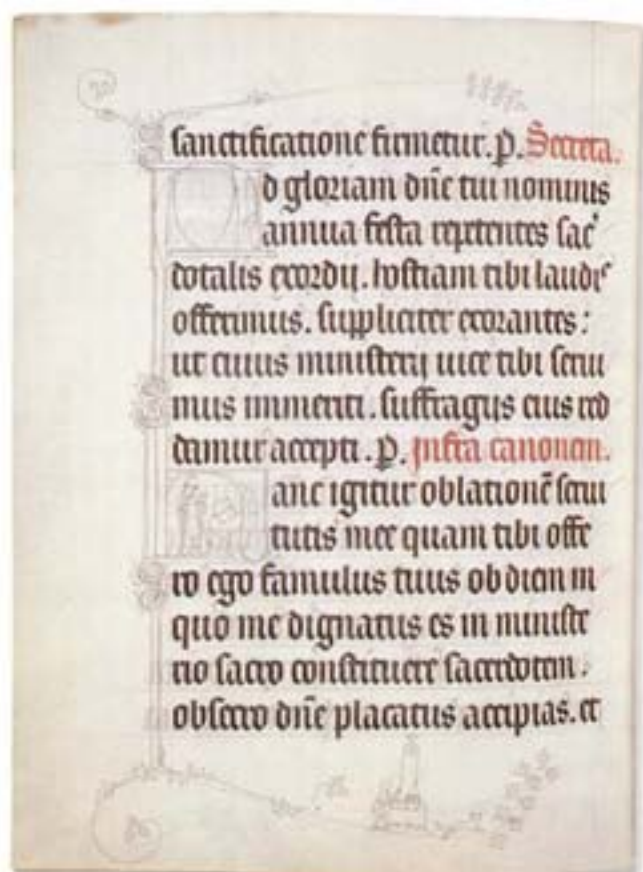 sanctificatione firmetur. P. Secreta.
d gloriam dñe tui nominis
annua festa repetentes sac᷑
dotalis exordij. hostiam tibi laudis
offerimus. suppliciter exorantes:
ut cuius ministerij uice tibi serui
mus immeriti. suffragijs eius red
damur accepti. P. infra canonem.
anc igitur oblationē serui
tutis mee quam tibi offe
ro ego famulus tuus ob diem in
quo me dignatus es in ministe
rio sacro constituere sacerdotem:
obsecro dñe placatus accipias. et